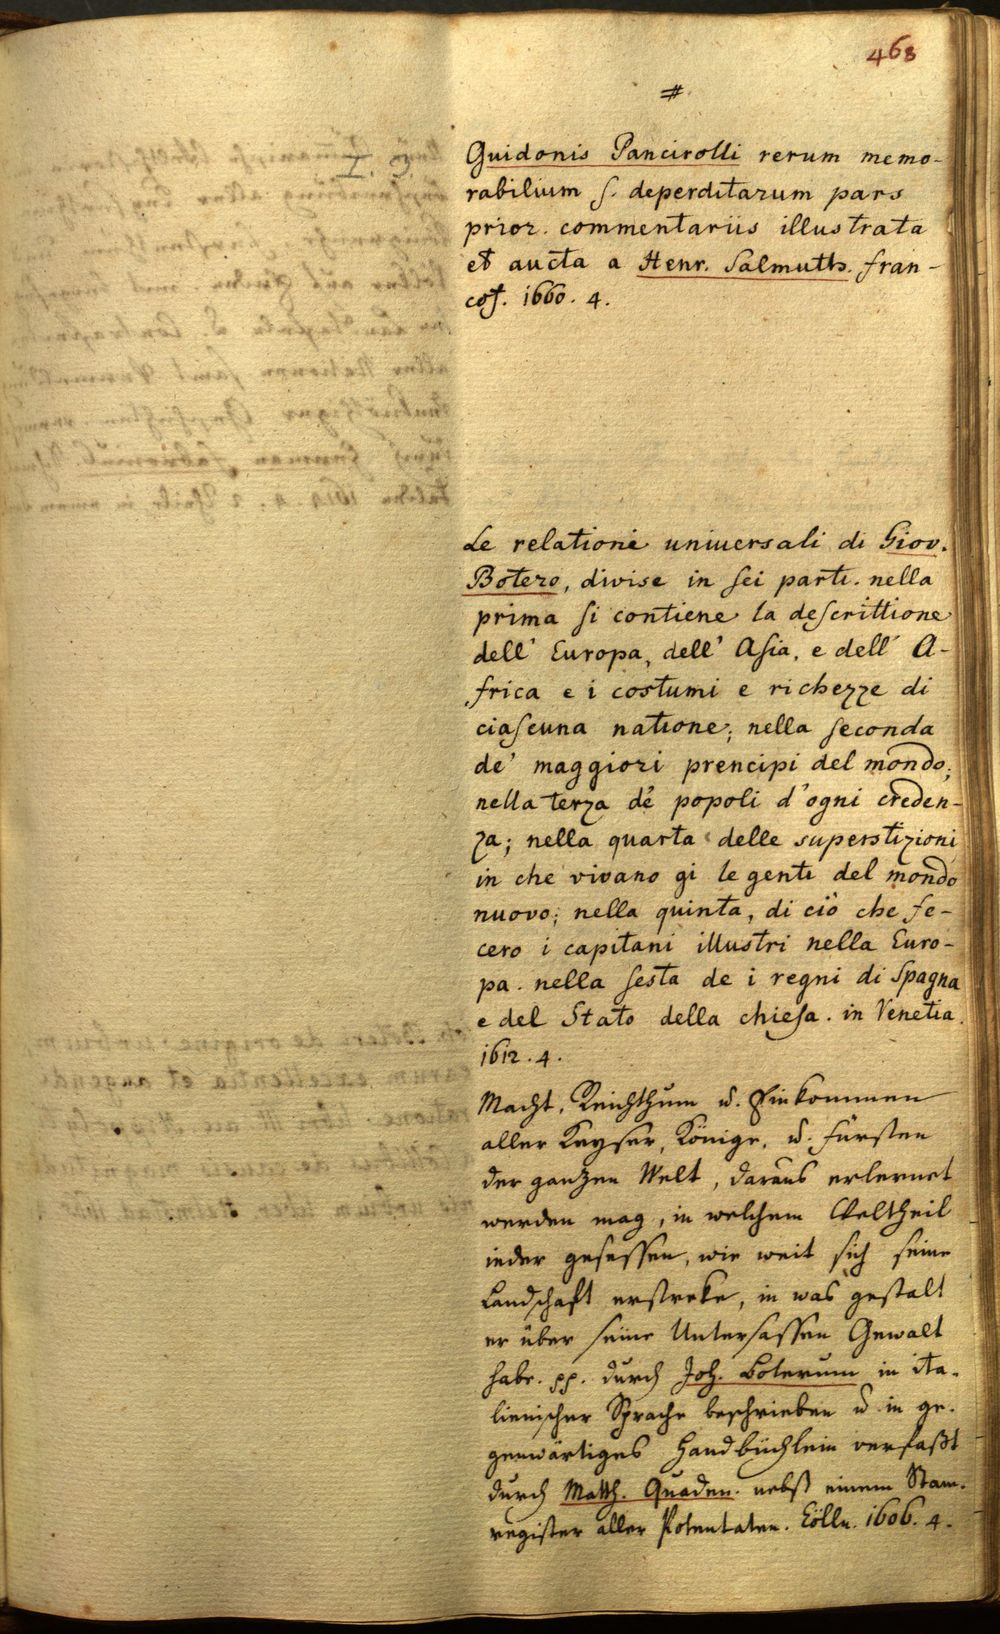 468
#
I. 3.
Guidonis Pancirolli rerum memo-
rabilium s. deperditarum pars
prior. commentariis illustrata
et aucta a Henr. Salmuth. fran-
cof. 1660. 4.
Le relationi uniuersali di Giov.
Botero, divise in sei parti. nella
prima si contiene la descrittione
dell' Europa, dell' Asia, e dell' A-
frica e i costumi e richezze di
ciascuna natione; nella seconda
de' maggiori prencipi del mondo;
nella terza de' popoli d'ogni creden-
za; nella quarta delle superstizioni
in che vivano gi le genti del mondo
nuovo; nella quinta, di ciò che fe-
cero i capitani illustri nella Euro-
pa. nella sesta de i regni di Spagna
e del Stato della chiesa. in Venetia.
1612. 4.
Macht, Reichthum u. Einkommen
aller Keyser, Könige, u. fürsten
der ganzen Welt, daraus erlernet
werden mag, in welchem Weltheil
ieder gesessen, wie weit sich seine
Landschaft erstreke, in was gestalt
er über seine Untersassen Gewalt
habe. pp. durch Joh. Boterum in ita-
lienischer Sprache beschrieben u in ge-
genwärtiges Handbüchlein verfaßt
durch Matth. Quaden. nebst einem Stam-
register aller Potentaten. Cölln. 1606. 4.